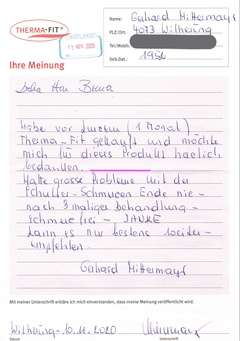 THERMA-FIT®
EINGELANGT
11. NOV. 2020
Name: Gerhard Mittermayr
PLZ/Ort: 4073 Wilhering
Tel/Mobil:
Geb.Dat.: 1952
Ihre Meinung
Habe vor kurzem (1 Monat)
Therma-Fit gekauft und möchte
mich für dieses Produkt herzlich
bedanken.
Hatte grosse Probleme mit der
Schulter-Schmerzen Ende nie-
nach 3 maliger Behandlung-
schmerzfrei-, DANKE
kann es nur bestens weiter-
empfehlen.
Gerhard Mittermayr
Mit meiner Unterschrift erkläre ich mich einverstanden, dass meine Meinung veröffentlicht wird.
Wilhering- 10.11.2020
Datum
Unterschrift